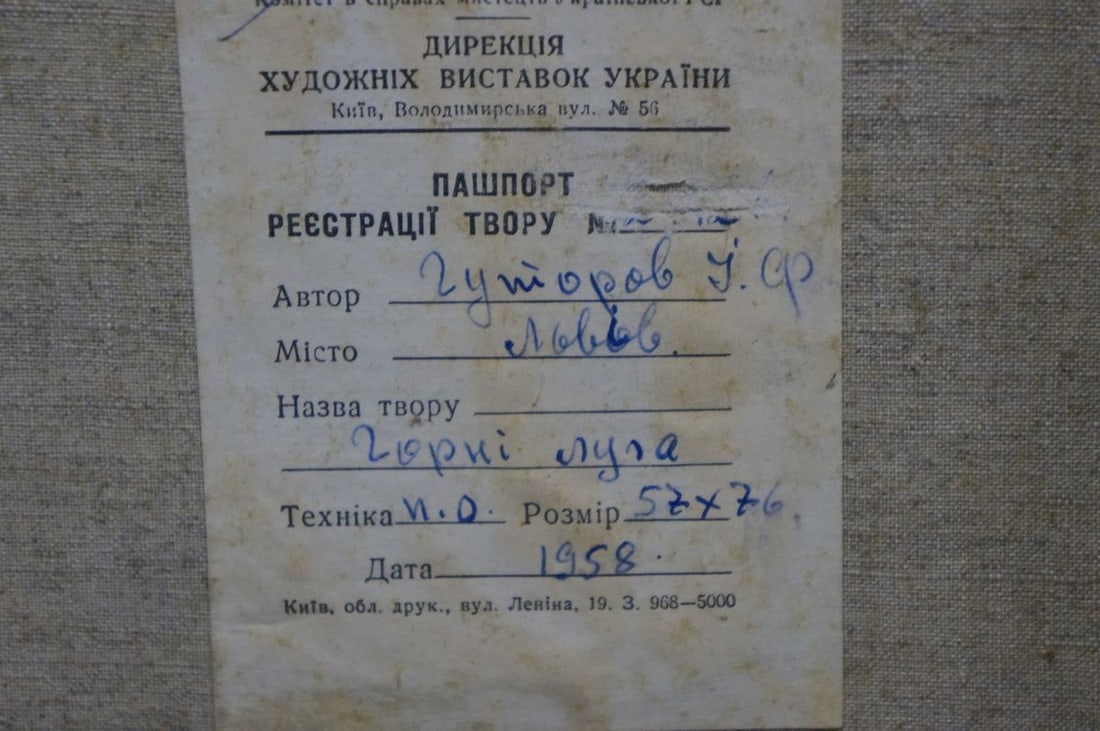 Комітет в справах мистецтв Української РСР
ДИРЕКЦІЯ
ХУДОЖНІХ ВИСТАВОК УКРАЇНИ
Київ, Володимирська вул. № 56
ПАШПОРТ
РЕЄСТРАЦІЇ ТВОРУ №
Автор Гуторов І. Ф
Місто Львів.
Назва твору
Горні луга
Техніка п.о. Розмір 57х76.
Дата 1958.
Київ, обл. друк., вул. Леніна, 19. З. 968—5000